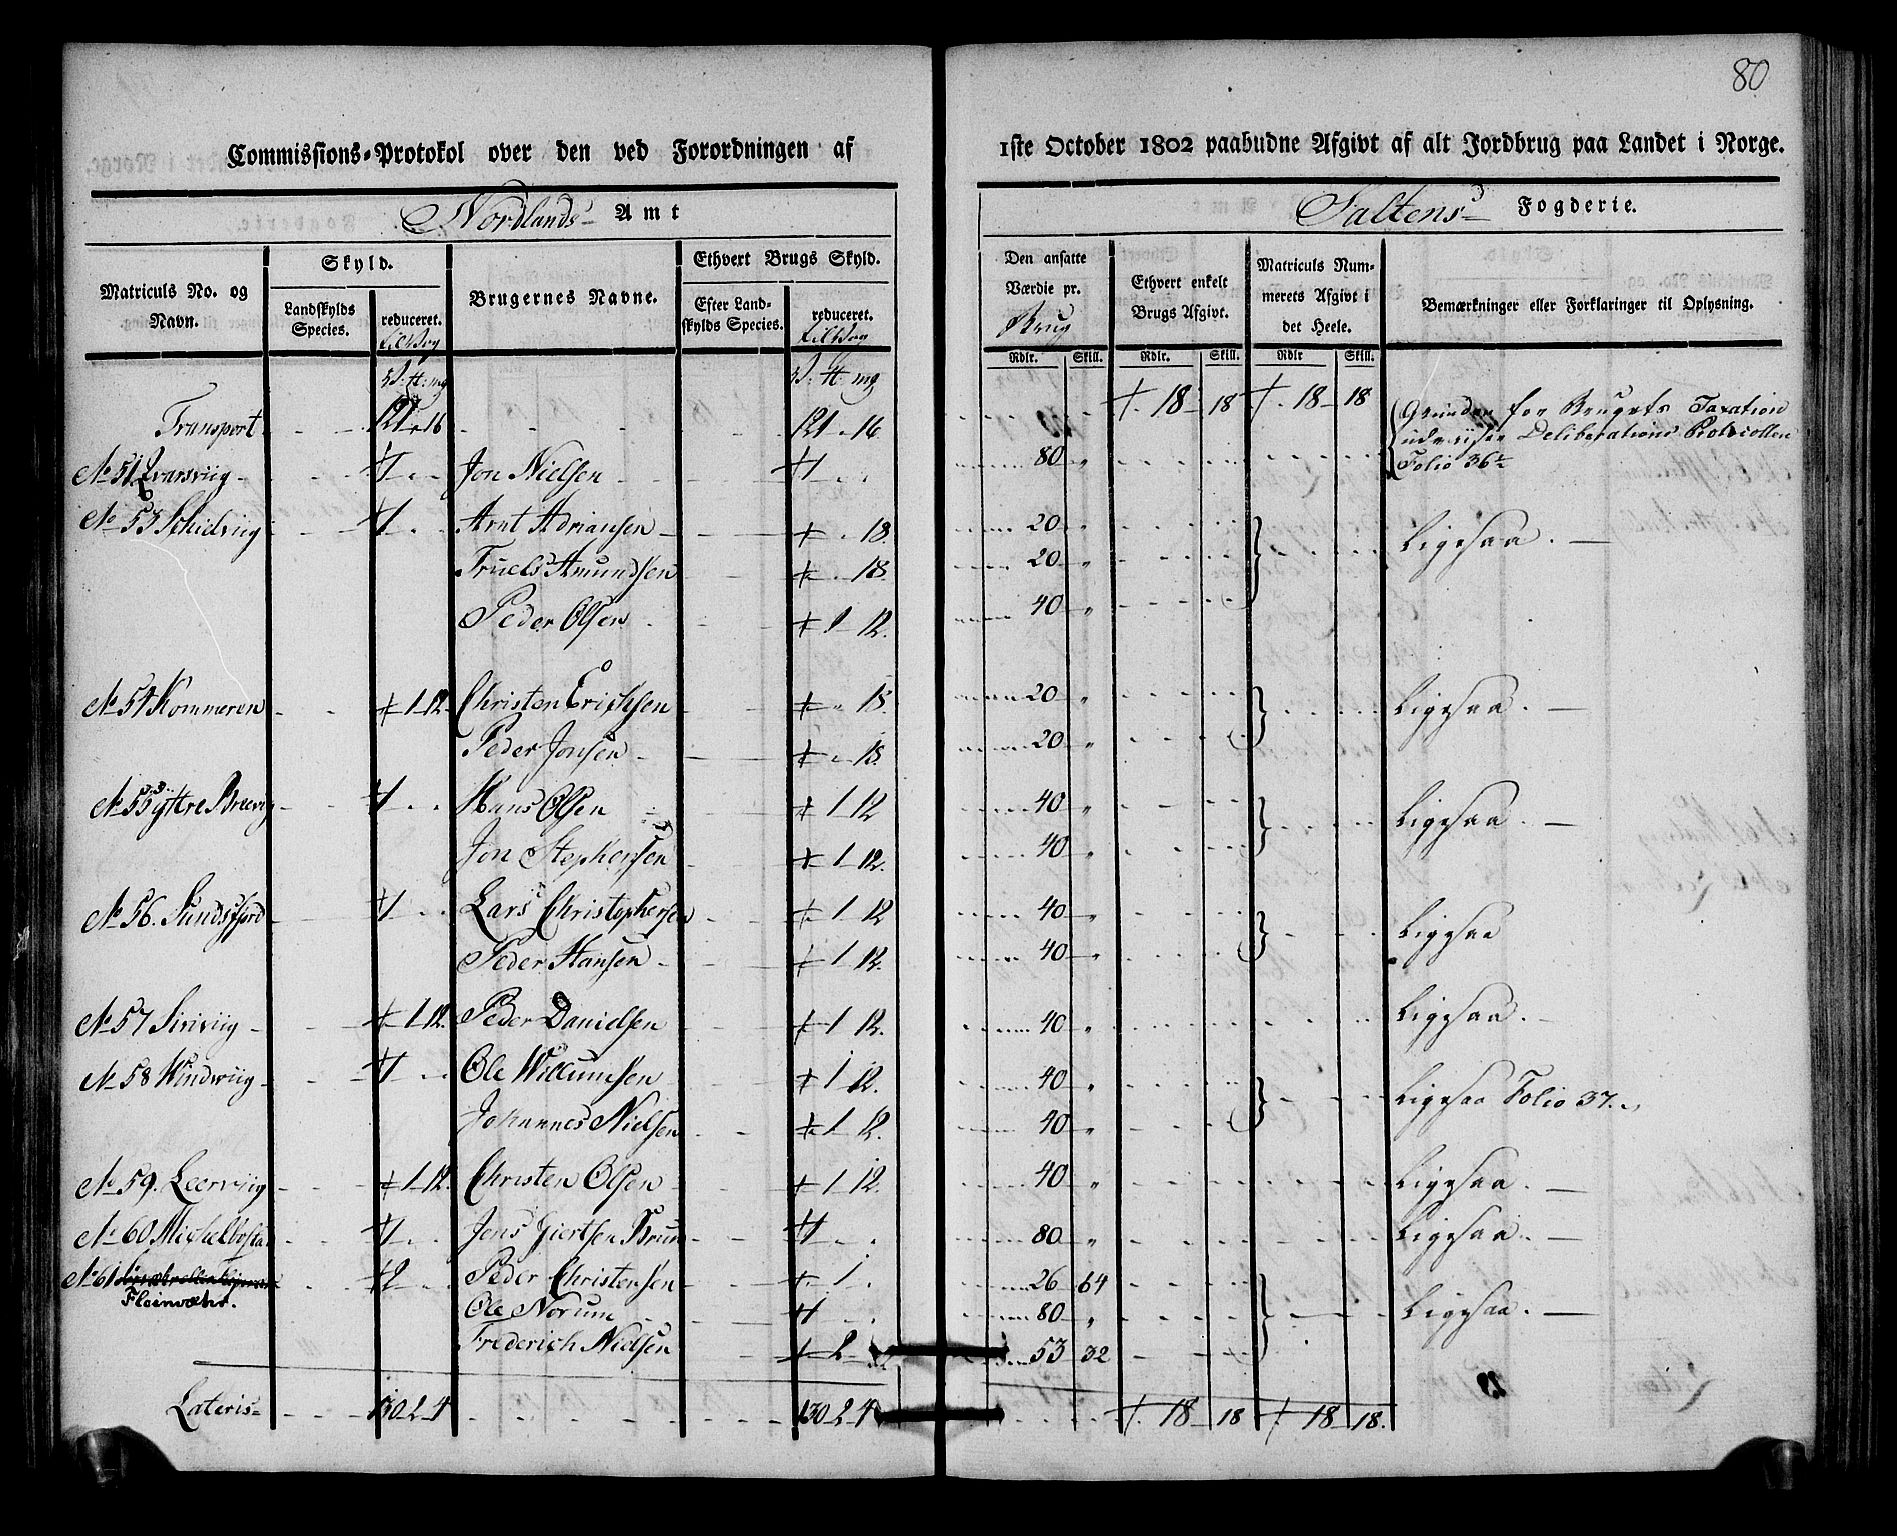 80
Commissions-Protokol over den ved Forordningen af
1ste October 1802 paabudne Afgivt af alt Jordbrug paa Landet i Norge.
Nordlands Amt
Saltens Fogderie.
Matriculs No. og Navn.
Skyld.
Landskylds Species.
reduceret.
Brugernes Navne.
Ethvert Brugs Skyld.
Efter Landskylds Species.
reduceret.
Den ansatte Værdie pr. Brug
Ethvert enkelt Brugs Afgivt.
Matriculs Nummerets Afgivt i det Heele.
Bemærkninger eller Forklaringer til Oplysning.
Rdlr. Skill. Rdlr. Skill. Rdlr Skill.
Transport 121 - 16 121 - 16 18 18 18 18 Grunden for Brugets Taxation
udviiser Deliberations Protocollen
Folio 36
No 51 Evarsviig 1 Jon Nielsen 1 80 "
No 53 Schidviig 1 Arnt Adriansen 18. 20 " Ligesaa.
Truels Amundsen 18. 20 "
Peder Olsen 1 12. 40 "
No 54 Kommeren 1 12. Christen Erichsen 18. 20 " Ligesaa.
Peder Jonsen 18. 20 "
No 55 yttre Breevig 1 Hans Olsen 1 12 40 " Ligesaa.
Jon Stephensen 1 12. 40 "
No 56. Sundsfjord 1 Lars Christophersen 1 12 40 " Ligesaa
Peder Hansen 1 12. 40 "
No 57 Siriviig 1 12. Peder Danielsen 1 12. 40 " Ligesaa.
No 58 Kindviig 1 Ole Willumsen 1 12. 40 " Ligesaa Folio 37.
Johannes Nielsen 1 12. 40 "
No 59. Leerviig 1 12. Christen Olsen 1 12. 40 " Ligesaa.
No 60 Michelbostad 1 Jens Giertsen Brun 1 80 " Ligesaa.
No 61 2 Peder Christensen 1. 26 64
Fleinvæhr. Ole Norum 1 80 " Ligesaa.
Frederich Nielsen 2 53 32
Lateris 130 2 4 130 2 4 18 18 18 18.